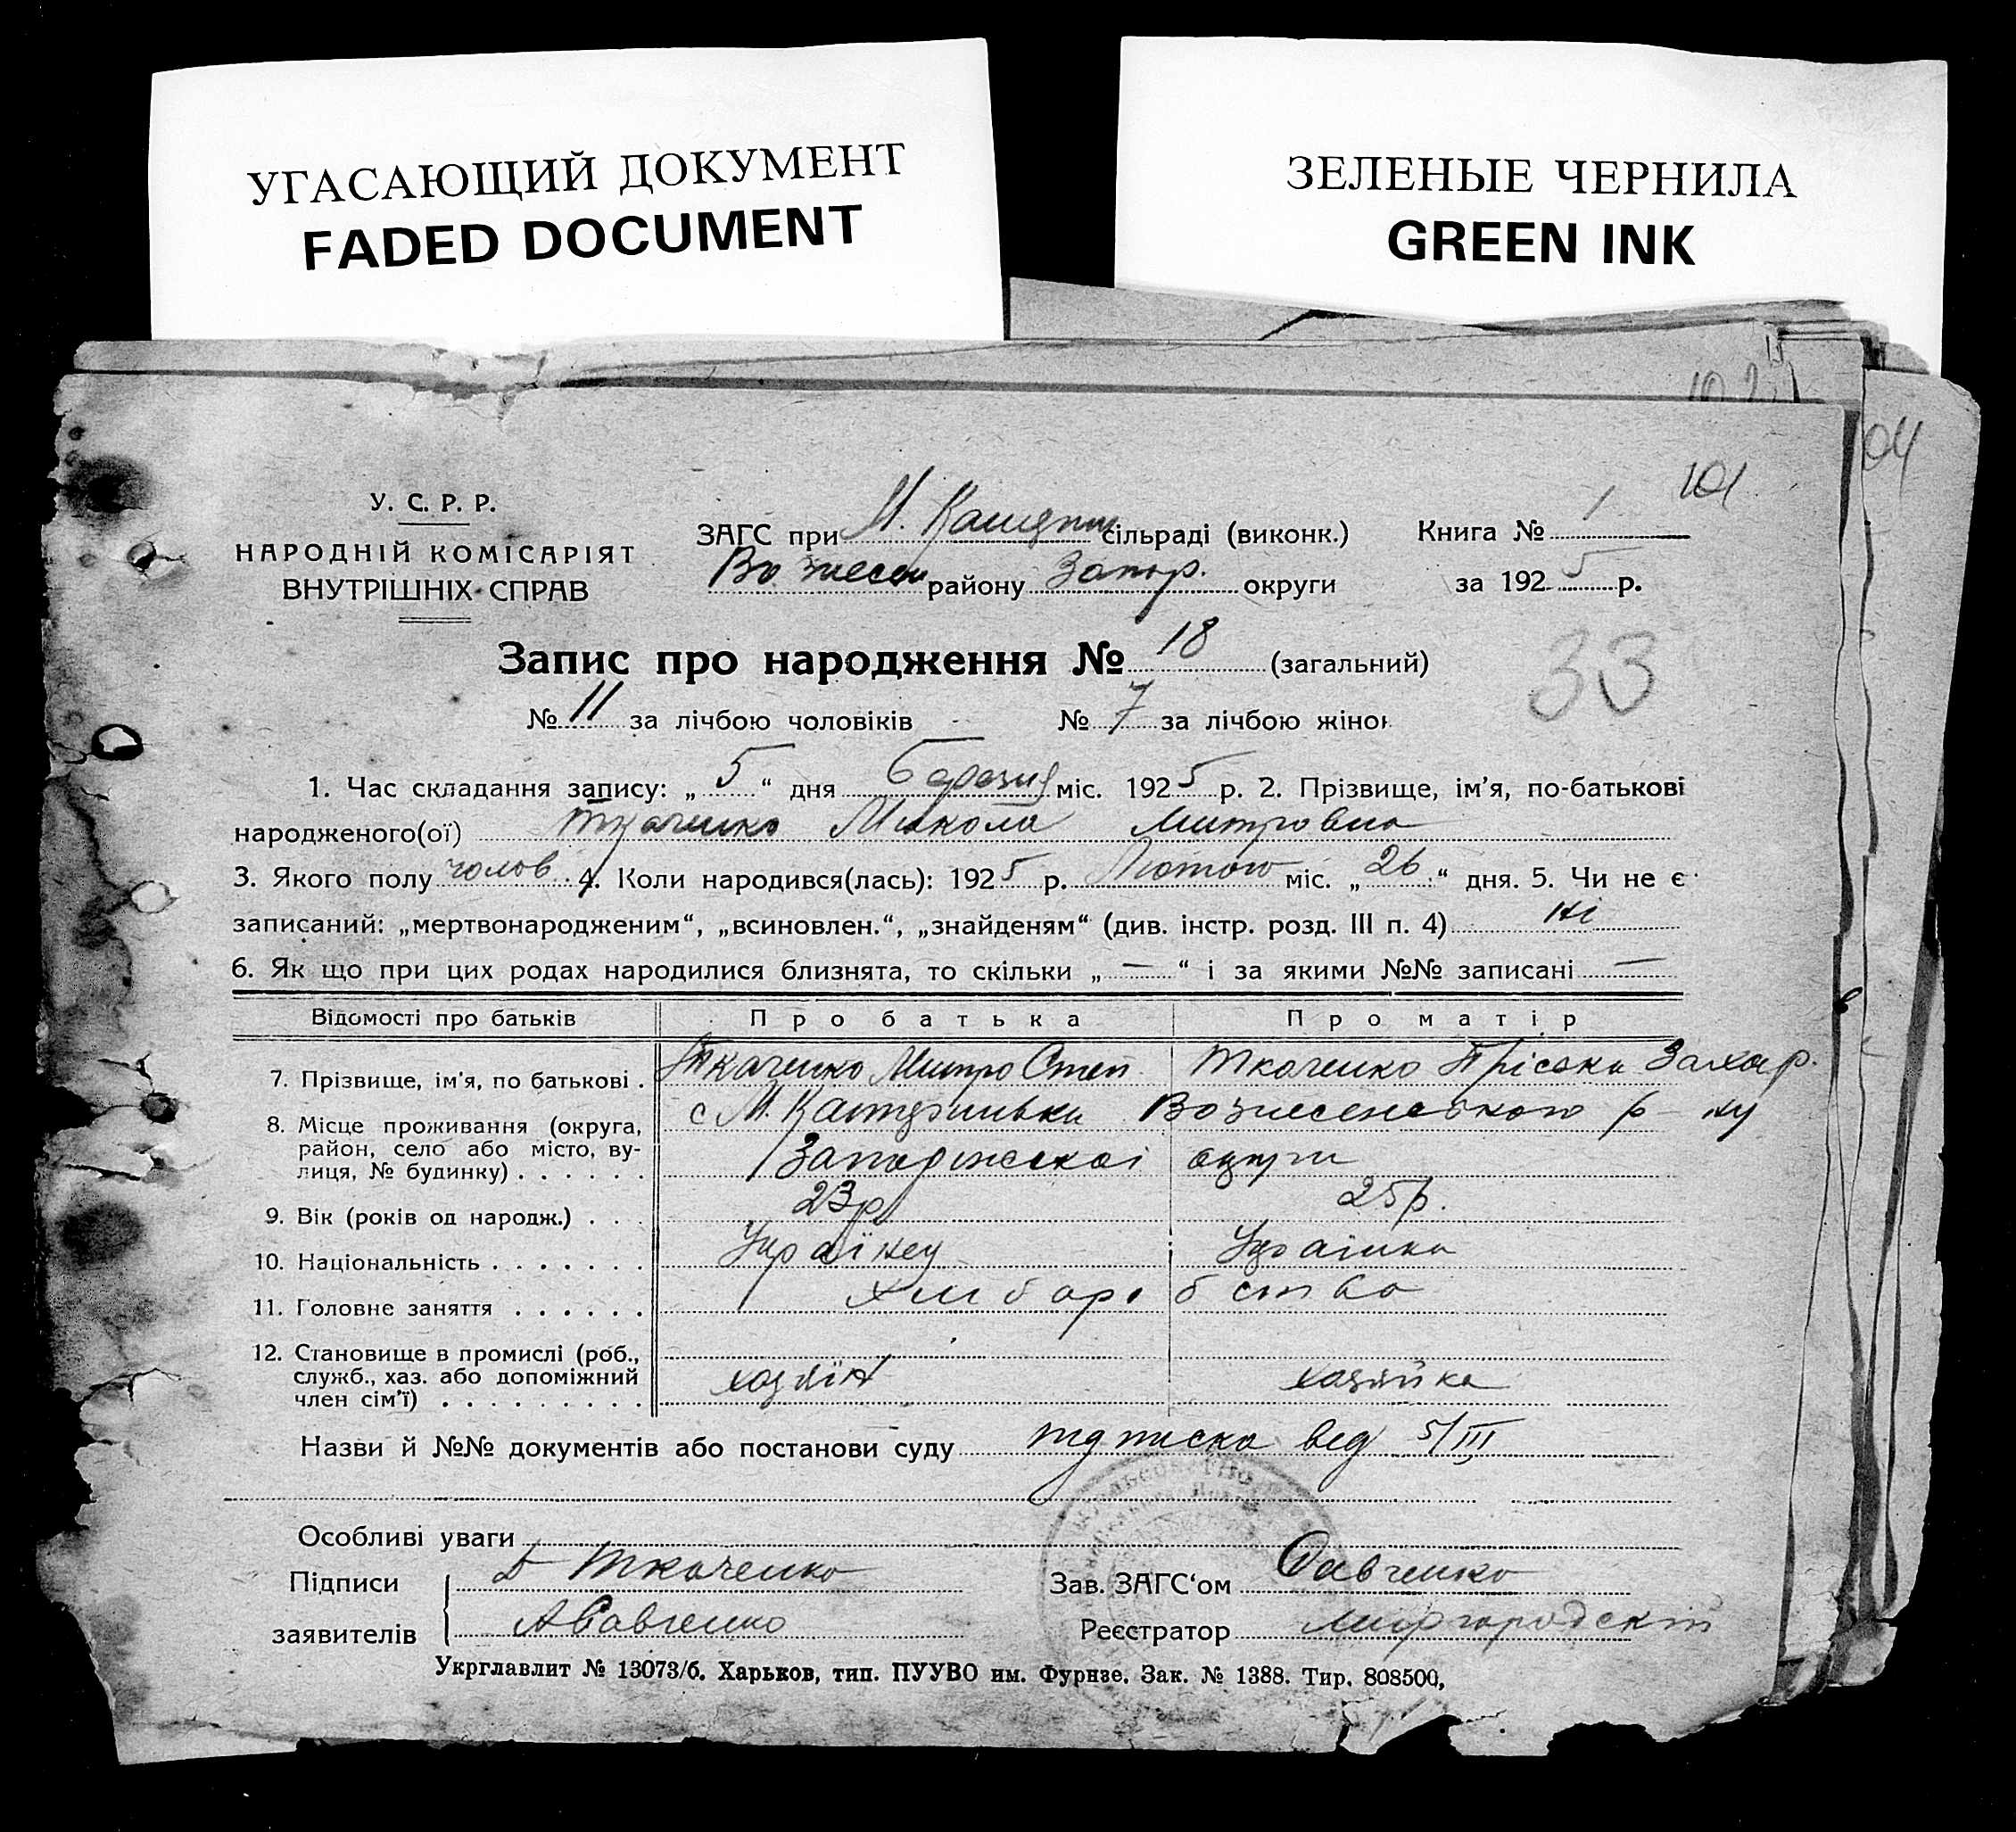 УГАСАЮЩИЙ ДОКУМЕНТ
FADED DOCUMENT
ЗЕЛЕНЫЕ ЧЕРНИЛА
GREEN INK
04
101
У. С. Р. Р.
НАРОДНІЙ КОМІСАРІЯТ
ВНУТРІШНІХ СПРАВ
ЗАГС при М. сільраді (виконк.) Книга № 1
Вознесен району Запор. округи за 1925 р.
Запис про народження № 18 (загальний)
33
№ 11 за лічбою чоловіків № 7 за лічбою жінок
1. Час складання запису: „5“ дня березня міс. 1925 р. 2. Прізвище, ім'я, по-батькові
народженого(ої) Ткаченко Микола Митровна
3. Якого полу чолов. 4. Коли народився(лась): 1925 р. Лютого міс. „26“ дня. 5. Чи не є
записаний: „мертвонародженим“, „всиновлен.“, „знайденям“ (див. інстр. розд. III п. 4) ні
6. Як що при цих родах народилися близнята, то скільки „—“ і за якими №№ записані —
Відомості про батьків Про батька Про матір
7. Прізвище, ім'я, по батькові . Ткаченко Митро Степ. Ткаченко Пріська Захар.
8. Місце проживання (округа, с М. Катеринівка Вознесенського р-ну
район, село або місто, ву-
лиця, № будинку) . . . . . . Запоріжської округи
9. Вік (років од народж.) . . . 23 р 25 р.
10. Національність . . . . . . . Українец Українка
11. Головне заняття . . . . . . хліборобство
12. Становище в промислі (роб.,
служб., хаз. або допоміжний хазяїн хазяйка
член сім'ї) . . . . . . . . .
Назви й №№ документів або постанови суду підписка від 5/III
Особливі уваги
Підписи Д Ткаченко Зав. ЗАГС'ом Савченко
заявителів А Савченко Реєстратор Миргородскій
Укрглавлит № 13073/б. Харьков, тип. ПУУВО им. Фурнзе. Зак. № 1388. Тир. 808500,